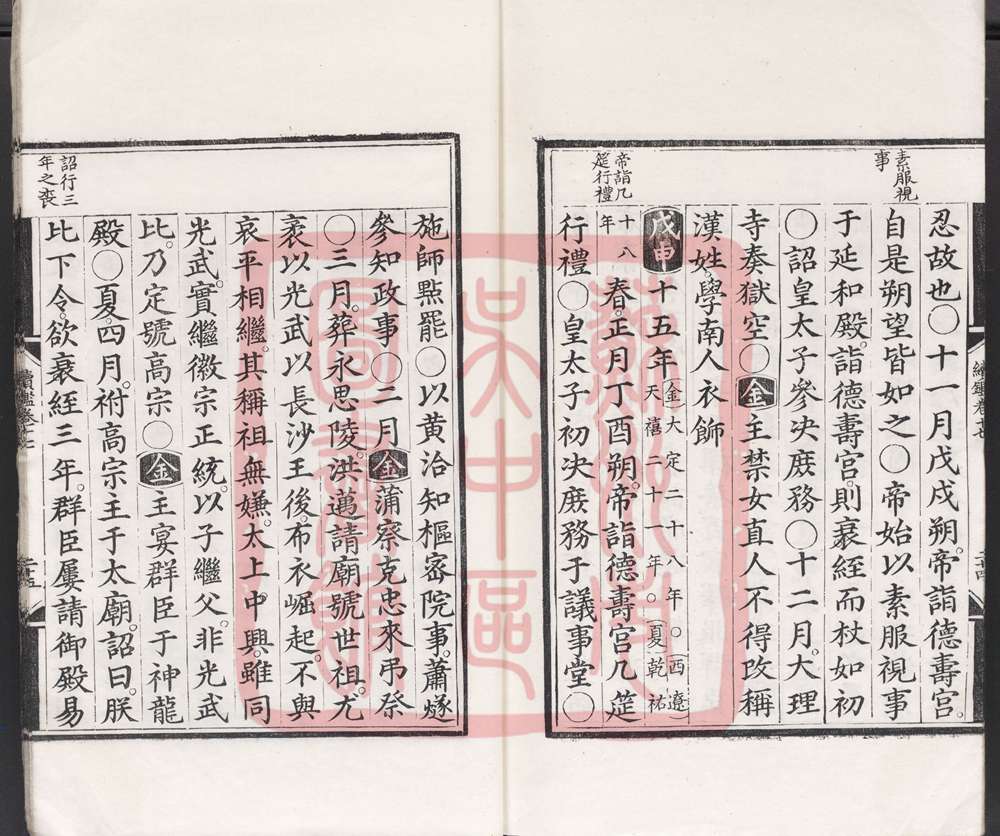 素服視
事
忍故也○十一月戊戌朔帝詣德壽宮
自是朔望皆如之○帝始以素服視事
于延和殿詣德壽宮則衰絰而杖如初
○詔皇太子參决庶務○十二月大理
寺奏獄空○金主禁女直人不得改稱
漢姓學南人衣飾
帝詣几
筵行禮
戊申十五年金大定二十八年○西遼
天禧二十一年○夏乾祐
十八
年
春正月丁酉朔帝詣德壽宮几筵
行禮○皇太子初决庶務于議事堂○
續鑑卷十七
二十四
施師點罷○以黄洽知樞宻院事蕭燧
參知政事○二月金蒲察克忠來弔祭
○三月葬永思陵洪邁請廟號世祖尤
袤以光武以長沙王後布衣崛起不與
哀平相繼其稱祖無嫌太上中興雖同
光武實繼徽宗正統以子繼父非光武
比乃定號高宗○金主宴群臣于神龍
殿○夏四月祔高宗主于太廟詔曰朕
詔行三
年之喪
比下令欲衰絰三年群臣屢請御殿易
蘇州市
吳中區
圖書館